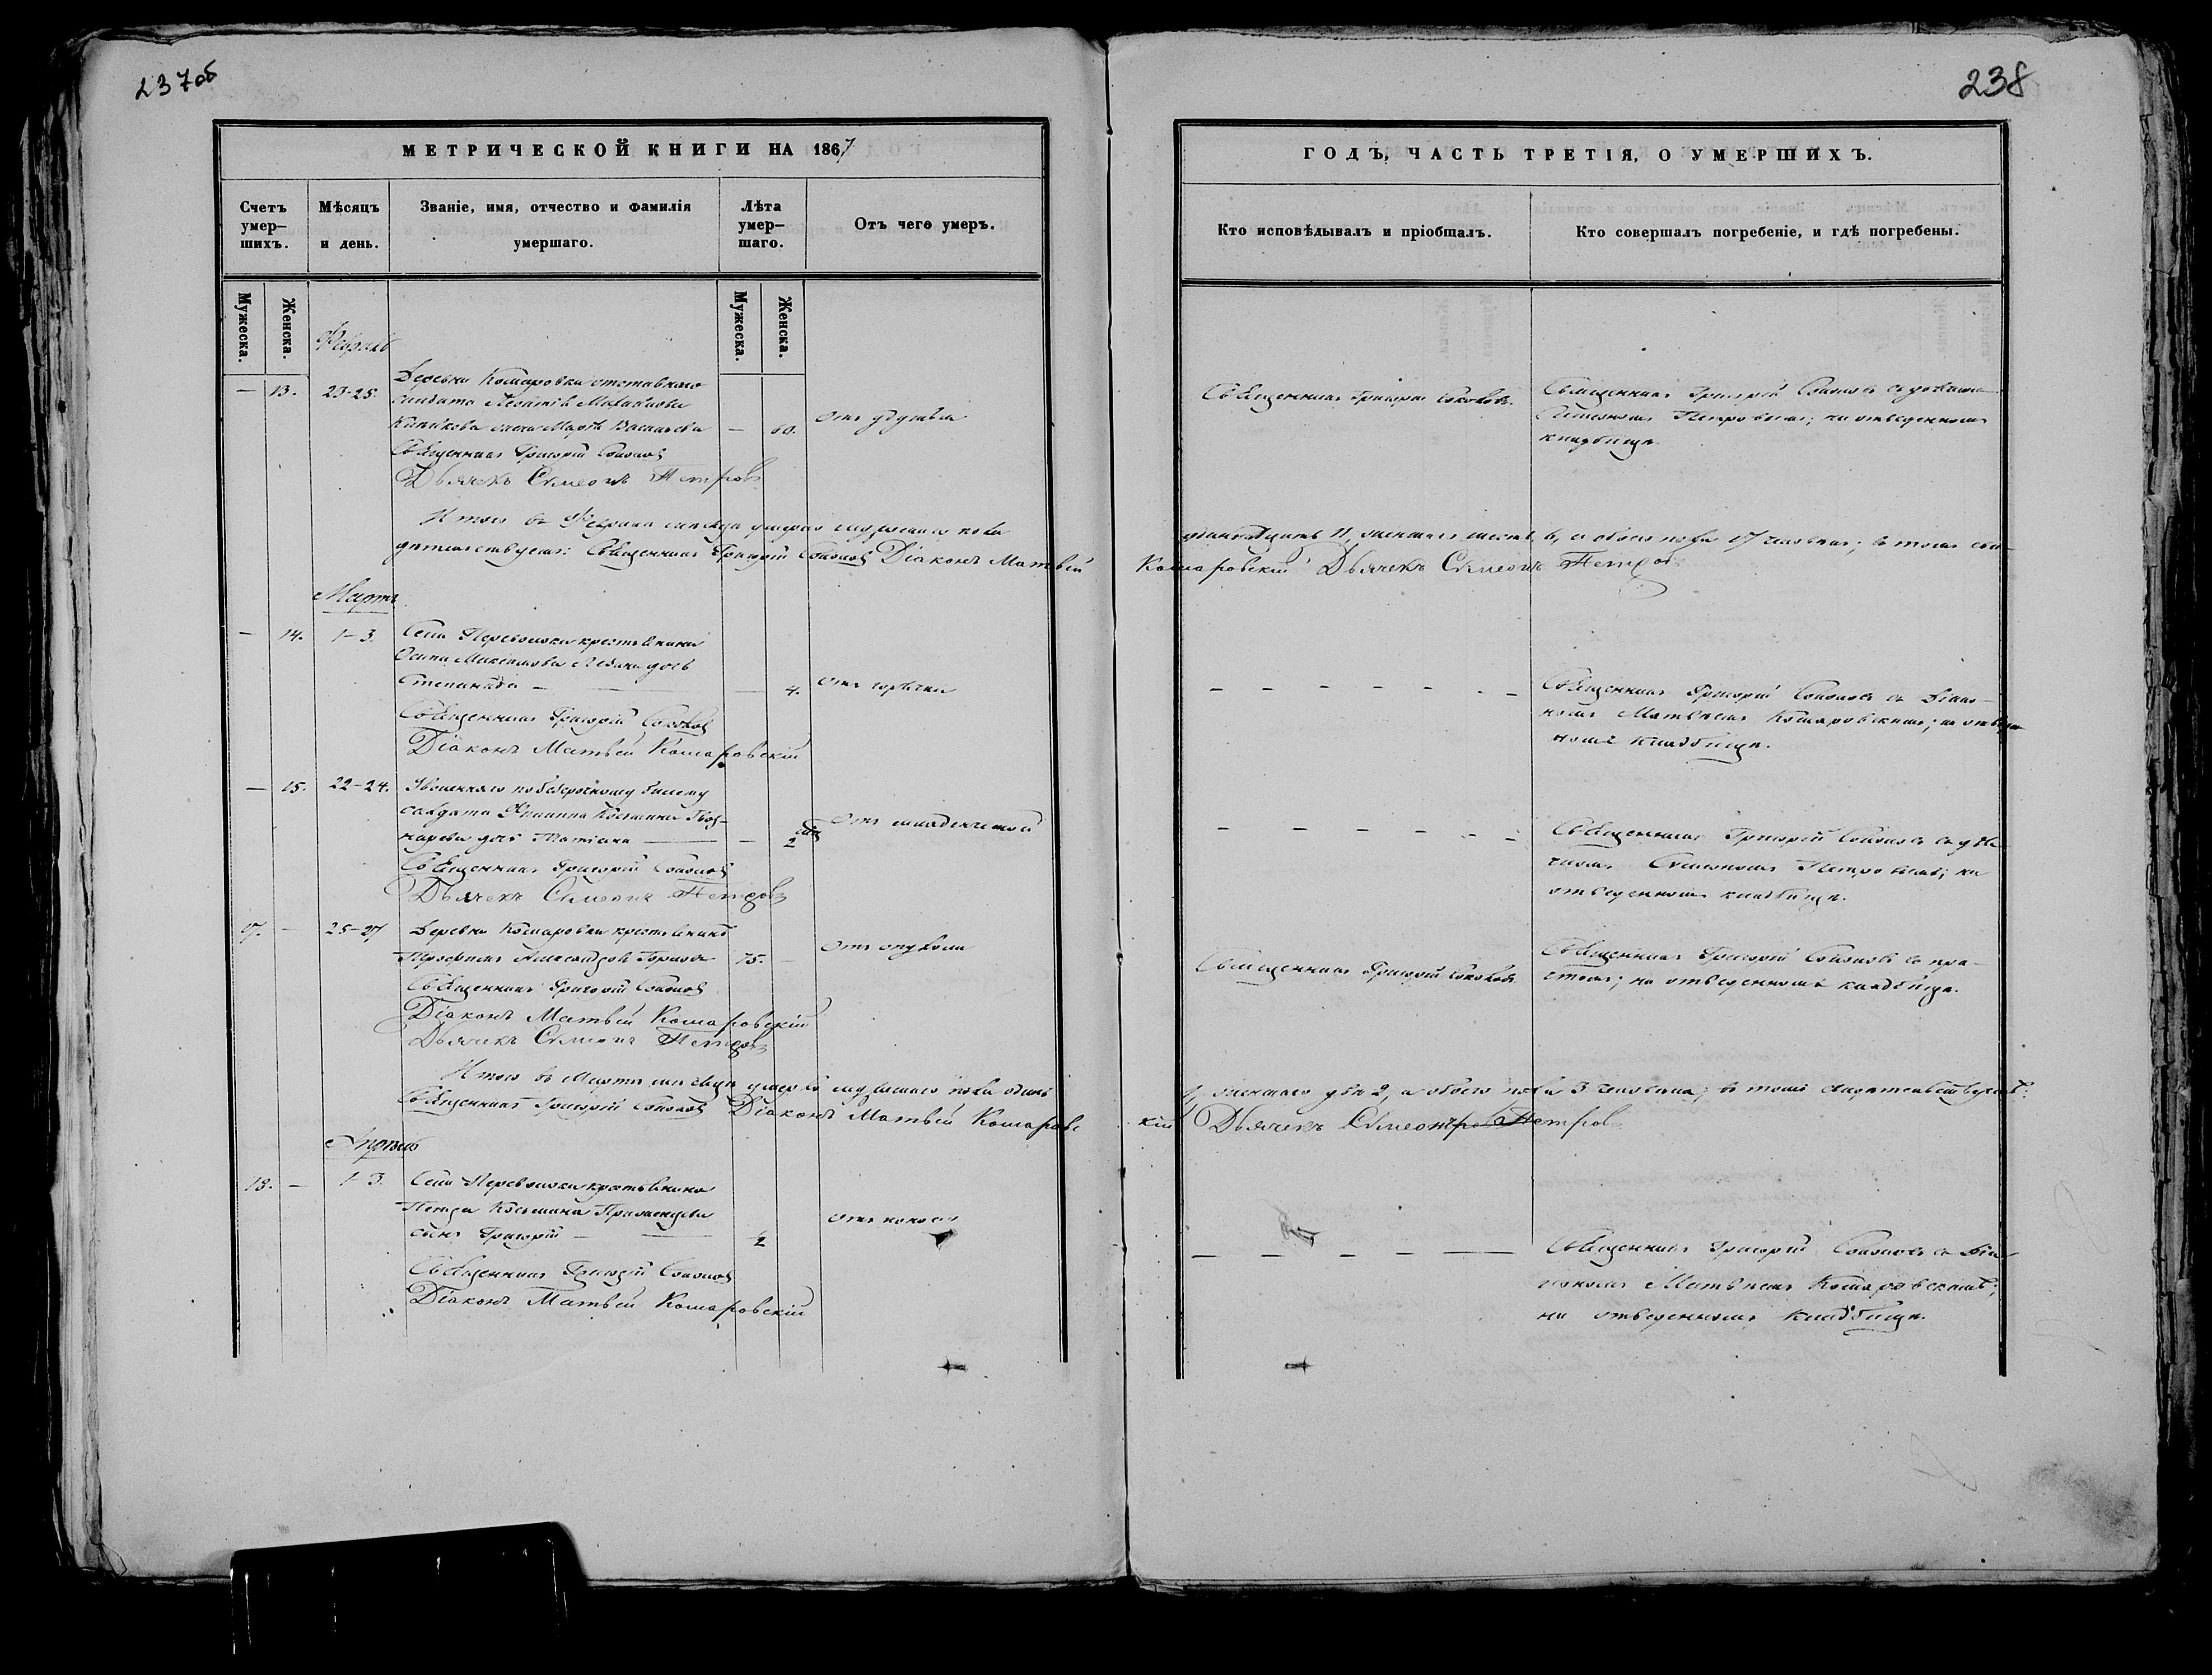 237об
238
МЕТРИЧЕСКОЙ КНИГИ НА 1867
ГОДЪ, ЧАСТЬ ТРЕТІЯ, О УМЕРШИХЪ.
Счетъ умер-
шихъ.
Мѣсяцъ
и день.
Званіе, имя, отчество и фамилія
умершаго.
Лѣта
умер-
шаго.
Отъ чего умеръ.
Кто исповѣдывалъ и пріобщалъ.
Кто совершалъ погребеніе, и гдѣ погребены.
Мужеска.
Женска.
Мужеска.
Женска.
Февраль
— 13. 23-25.
Деревни Комаровки отставнаго
солдата Леонтія Михайлова
жена Марія Васильева — 60.
Отъ удушья
Священникъ Григорій Соколовъ
Дьячекъ Сѵмеонъ Петровъ
Священникъ Григорій Соколовъ.
Священникъ Григорій Соколовъ съ дьячкомъ
Сѵмеономъ Петровымъ; на отведенномъ
кладбищѣ.
Итого въ Февралѣ мѣсяцѣ умерло мужеска пола
одиннадцать 11, женска шесть 6, а обоего пола 17 человѣкъ; въ томъ сви-
дѣтельствуемъ: Священникъ Григорій Соколовъ Діаконъ Матвѣй
Комаровскій Дьячекъ Сѵмеонъ Петровъ
Мартъ
— 14. 1-3.
Села Перевозки крестьянина
Осипа дочь
Степанида — — 4.
Отъ горячки
Священникъ Григорій Соколовъ
Діаконъ Матвѣй Комаровскій
Священникъ Григорій Соколовъ съ Діако-
номъ Матвѣемъ Комаровскимъ; на отведен-
номъ кладбищѣ.
— 15. 22-24.
Уволеннаго по безсрочному билету
солдата Филиппа Козьмина
дочь Татіана — — 2
Отъ младенческой
Священникъ Григорій Соколовъ
Дьячекъ Сѵмеонъ Петровъ
Священникъ Григорій Соколовъ съ дья-
чкомъ Сѵмеономъ Петровымъ; на
отведенномъ кладбищѣ.
17. — 25-27
Деревни Комаровки крестьянинъ
75. —
Отъ опухоли
Священникъ Григорій Соколовъ
Діаконъ Матвѣй Комаровскій
Дьячекъ Сѵмеонъ Петровъ
Священникъ Григорій Соколовъ
Священникъ Григорій Соколовъ съ при-
чтомъ; на отведенномъ кладбищѣ.
Итого въ Мартѣ мѣсяцѣ умерло мужеска пола одинъ
1, женска двѣ 2, а обоего пола 3 человѣка; въ томъ свидѣтельствуемъ:
Священникъ Григорій Соколовъ Діаконъ Матвѣй Комаровс
кій Дьячекъ Сѵмеонъ Петровъ
Апрѣль
18. — 1-3.
Села Перевозки крестьянина
Петра Козьмина
сынъ Григорій — 2
Отъ поноса
Священникъ Григорій Соколовъ
Діаконъ Матвѣй Комаровскій
Священникъ Григорій Соколовъ съ Діа-
кономъ Матвѣемъ Комаровскимъ;
на отведенномъ кладбищѣ.